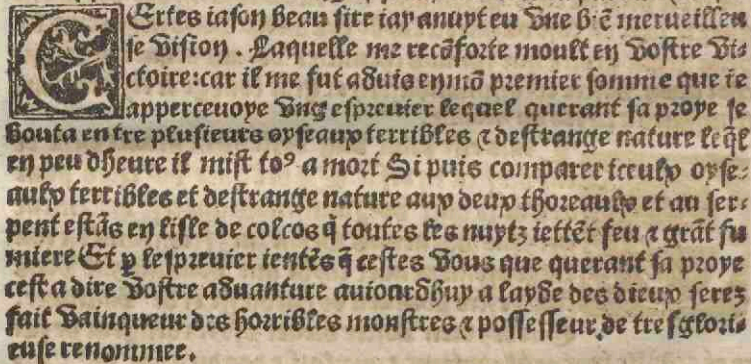 CErtes iason beau sire iay anuyt eu vne biẽ merueilleu
se vision. Laquelle me recõforte moult en vostre vi-
ctoire: car il me fut aduis en mõ premier somme que ie
apperceuoye vng espreuier lequel querant sa proye se
bouta en tre plusieurs oyseaux terribles ⁊ destrange nature leq̃l
en peu dheure il mist toꝰ a mort Si puis comparer iceulx oyse-
aulx terribles et destrange nature aux deux thoreaulx et au ser-
pent estãs en lisle de colcos q̃ toutes les nuytz iettẽt feu ⁊ grãt fu
miere Et ꝑ lespreuier ientẽs q̃ cestes vous que querant sa proye
cest a dire vostre aduanture auiourdhuy a layde des dieux serez
fait vainqueur des horribles monstres ⁊ possesseur de tresglori-
euse renommee.